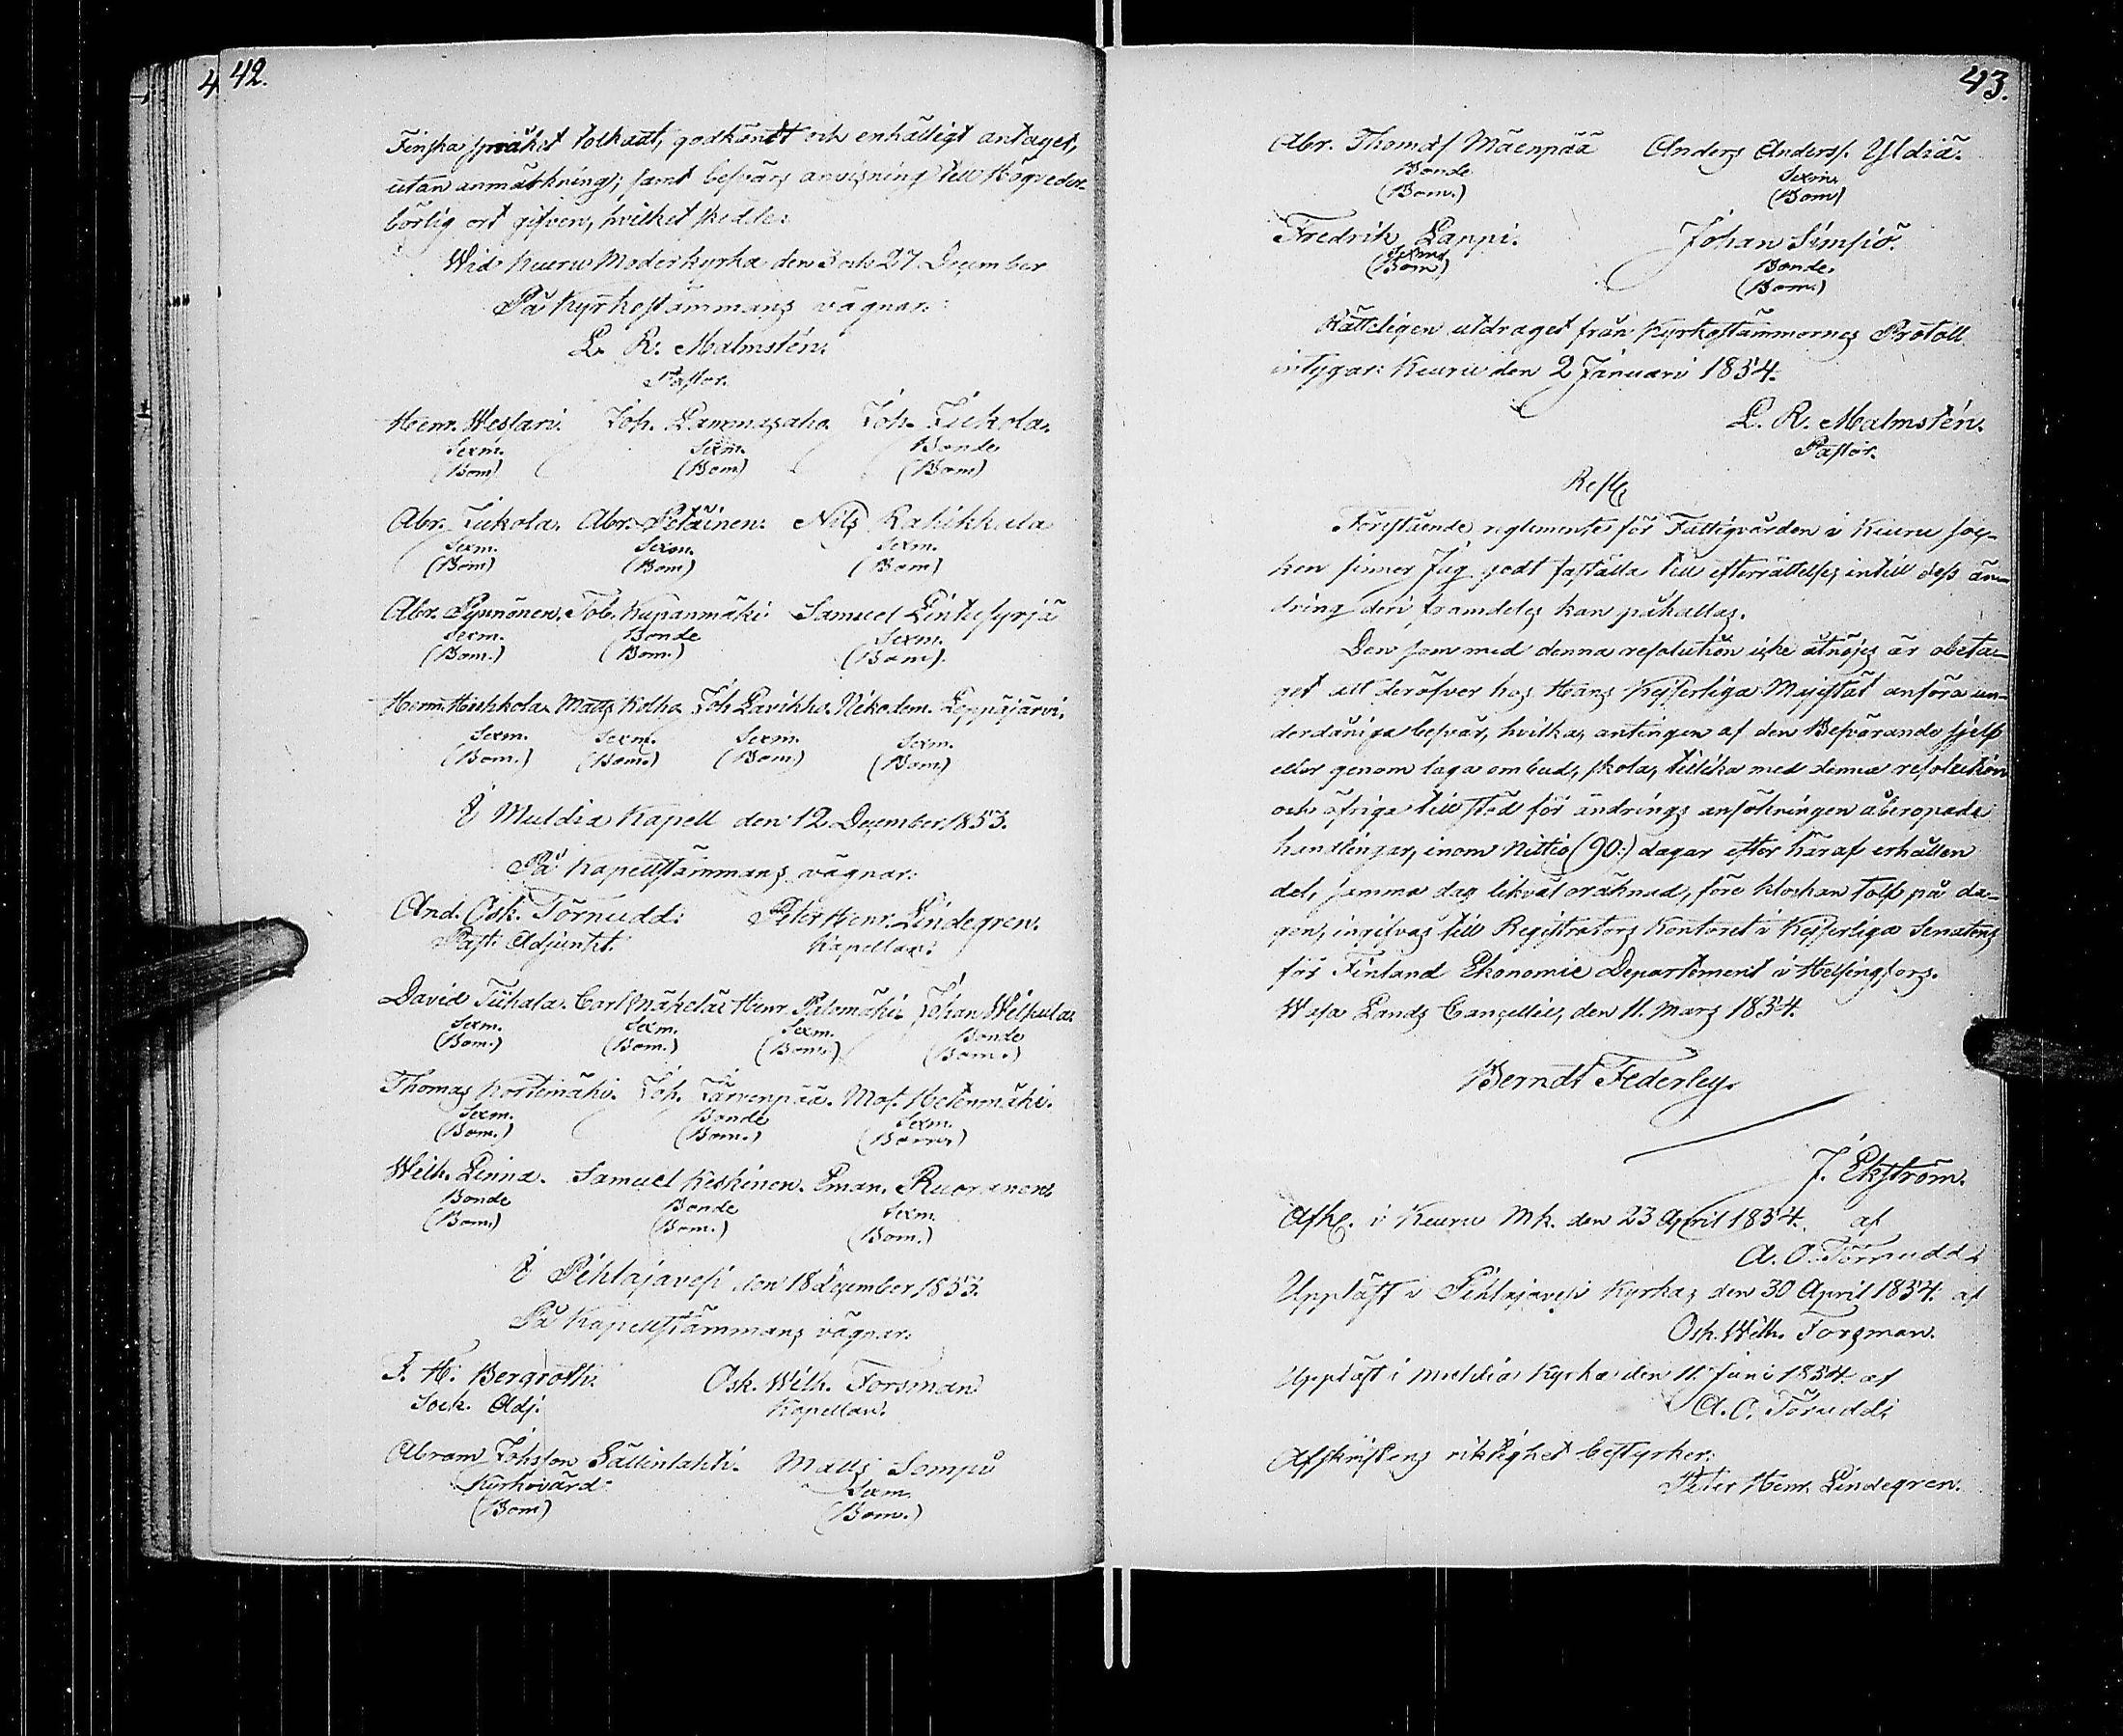 42.
Finska språket tolkadt, godkändt och enhälligt antaget,
utan anmärkning; samt besvärs anvisning till Högveder-
börlig ort gifven, hvilket skedde:
Wid Keuru Moderkyrka den 3 och 27 December
På Kyrkostämmans vägnar:
L. R. Malmstén.
Pastor.
Henr. Weslari. Joh. Lammasaho. Joh. Jukola.
Sexm. Sexm. Bonde
(Bom) (Bom) (Bom)
Abr. Jukola. Abr. Petäinen. Nils Rahikkala
Sexm. Sexm. Sexm.
(Bom) (Bom) (Bom)
Abr. Pynnönen. Tob. Kupanmäki. Samuel Lintusyrjä
Sexm. Bonde Sexm.
(Bom.) (Bom.) (Bom).
Herm. Matts Kolho Joh Nikodem. Leppäjärvi.
Sexm. Sexm. Sexm. Sexm.
(Bom.) (Bom.) (Bom) (Bom)
I Muldia Kapell den 12 December 1853.
På Kapellstämmans vägnar:
And. Osk. Törnudd. Peter Henr. Lindegren.
Past. Adjunkt. Kapellan.
David Tiihala. Carl Mäkelä. Henr. Palomäki. Johan Wilpula.
Sexm. Sexm. Sexm. Bonde
(Bom.) (Bom.) (Bom.) (Bom.)
Thomas Kortemäki. Joh. Järvenpää. Mos. Hetenmäki.
Sexm. Bonde Sexm.
(Bom.) (Bom.) (Bom.)
Wilh. Linna. Samuel Keskinen. Eman. Ruoranen.
Bonde Bonde Sexm.
(Bom.) (Bom.) (Bom.)
I Pihlajavesi den 18 December 1853.
På Kapellstämmans vägnar:
F. H. Bergroth. Osk. Wilh. Forsman
Sock. Adj. Kapellan.
Abram Johsson Sällinlahti. Matts Sompi
Kyrkovärd Sexm.
(Bom) (Bom.)
43.
Abr. Thomass Mäenpää Anders Anderss. Yldiä.
Bonde Sexm.
(Bom.) (Bom)
Fredrik Lappi. Johan Simsiö.
Sexm. Bonde.
(Bom) (Bom.)
Rätteligen utdraget från Kyrkostämmornes Protoll
intygar: Keuru den 2 Januari 1854.
L. R. Malmstén.
Pastor.
Resl.
Förestående reglemente för Fattigvården i Keuru soc-
ken finner Jag godt faställa till efterrättelse, intill dess än-
dring deri framdeles kan påkallas.
Den som med denna resolution icke åtnöjes är obeta-
get att deröfver hos Hans Kejserliga Majestät anföra un-
derdåniga besvär, hvilka, antingen af den Besvärande sjelf
eller genom laga ombud, skola, tillika med denna resolution
och öfriga till stöd för ändrings ansökningen åberopade
handlingar, inom Nittio (90:) dagar efter häraf erhållen
del, samma dag likväl oräknad, före klockan Tolf på da-
gen, ingifvas till Registrators Kontoret i Kejserliga Senatens
för Finland Ekonomie Departement i Helsingfors.
Wasa Lands Cancellie, den 11. Mars 1854.
Berndt Federley.
J. Ekström.
Afk. i Keuru Mk. den 23 April 1854. af
A. O. Törnudd.
Uppläst i Pihlajavesi Kyrka, den 30 April 1854. af
Osk. Wilh. Forsman.
Uppläst i Muldia Kyrka den 11. Juni 1854. af
A. O. Törnudd.
Afskriftens riktighet bestyrker:
Peter Henr. Lindegren.